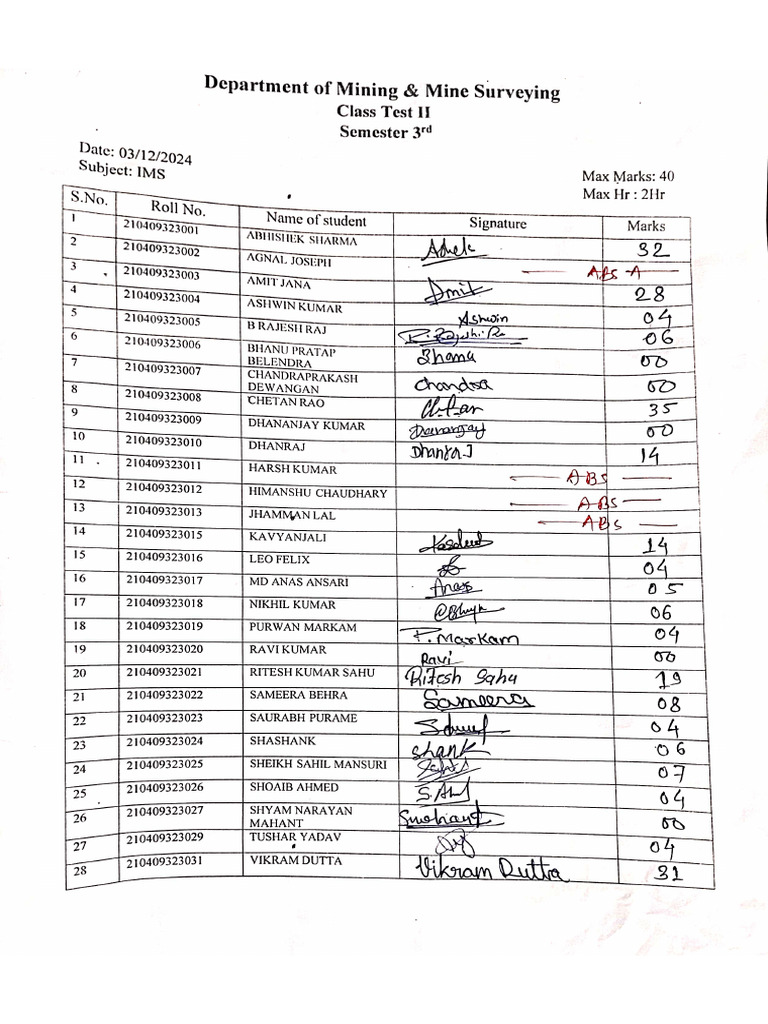 Department of Mining & Mine Surveying
Class Test II
Semester 3rd
Date: 03/12/2024
Subject: IMS
Max Marks: 40
Max Hr : 2Hr
S.No. Roll No. Name of student Signature Marks
1 210409323001 ABHISHEK SHARMA 32
2 210409323002 AGNAL JOSEPH ABS A
3 210409323003 AMIT JANA Amit 28
4 210409323004 ASHWIN KUMAR Ashwin 04
5 210409323005 B RAJESH RAJ 06
6 210409323006 BHANU PRATAP BELENDRA Bhanu 00
7 210409323007 CHANDRAPRAKASH DEWANGAN Chandra 00
8 210409323008 CHETAN RAO 35
9 210409323009 DHANANJAY KUMAR Dananjay 00
10 210409323010 DHANRAJ Dhanraj 14
11 210409323011 HARSH KUMAR ABS
12 210409323012 HIMANSHU CHAUDHARY ABS
13 210409323013 JHAMMAN LAL ABS
14 210409323015 KAVYANJALI 14
15 210409323016 LEO FELIX 04
16 210409323017 MD ANAS ANSARI Anas 05
17 210409323018 NIKHIL KUMAR 06
18 210409323019 PURWAN MARKAM P. Markam 04
19 210409323020 RAVI KUMAR Ravi 00
20 210409323021 RITESH KUMAR SAHU Ritesh Sahu 19
21 210409323022 SAMEERA BEHRA Sameera 08
22 210409323023 SAURABH PURAME 04
23 210409323024 SHASHANK Shank 06
24 210409323025 SHEIKH SAHIL MANSURI 07
25 210409323026 SHOAIB AHMED 04
26 210409323027 SHYAM NARAYAN MAHANT 00
27 210409323029 TUSHAR YADAV 04
28 210409323031 VIKRAM DUTTA Vikram Dutta 31